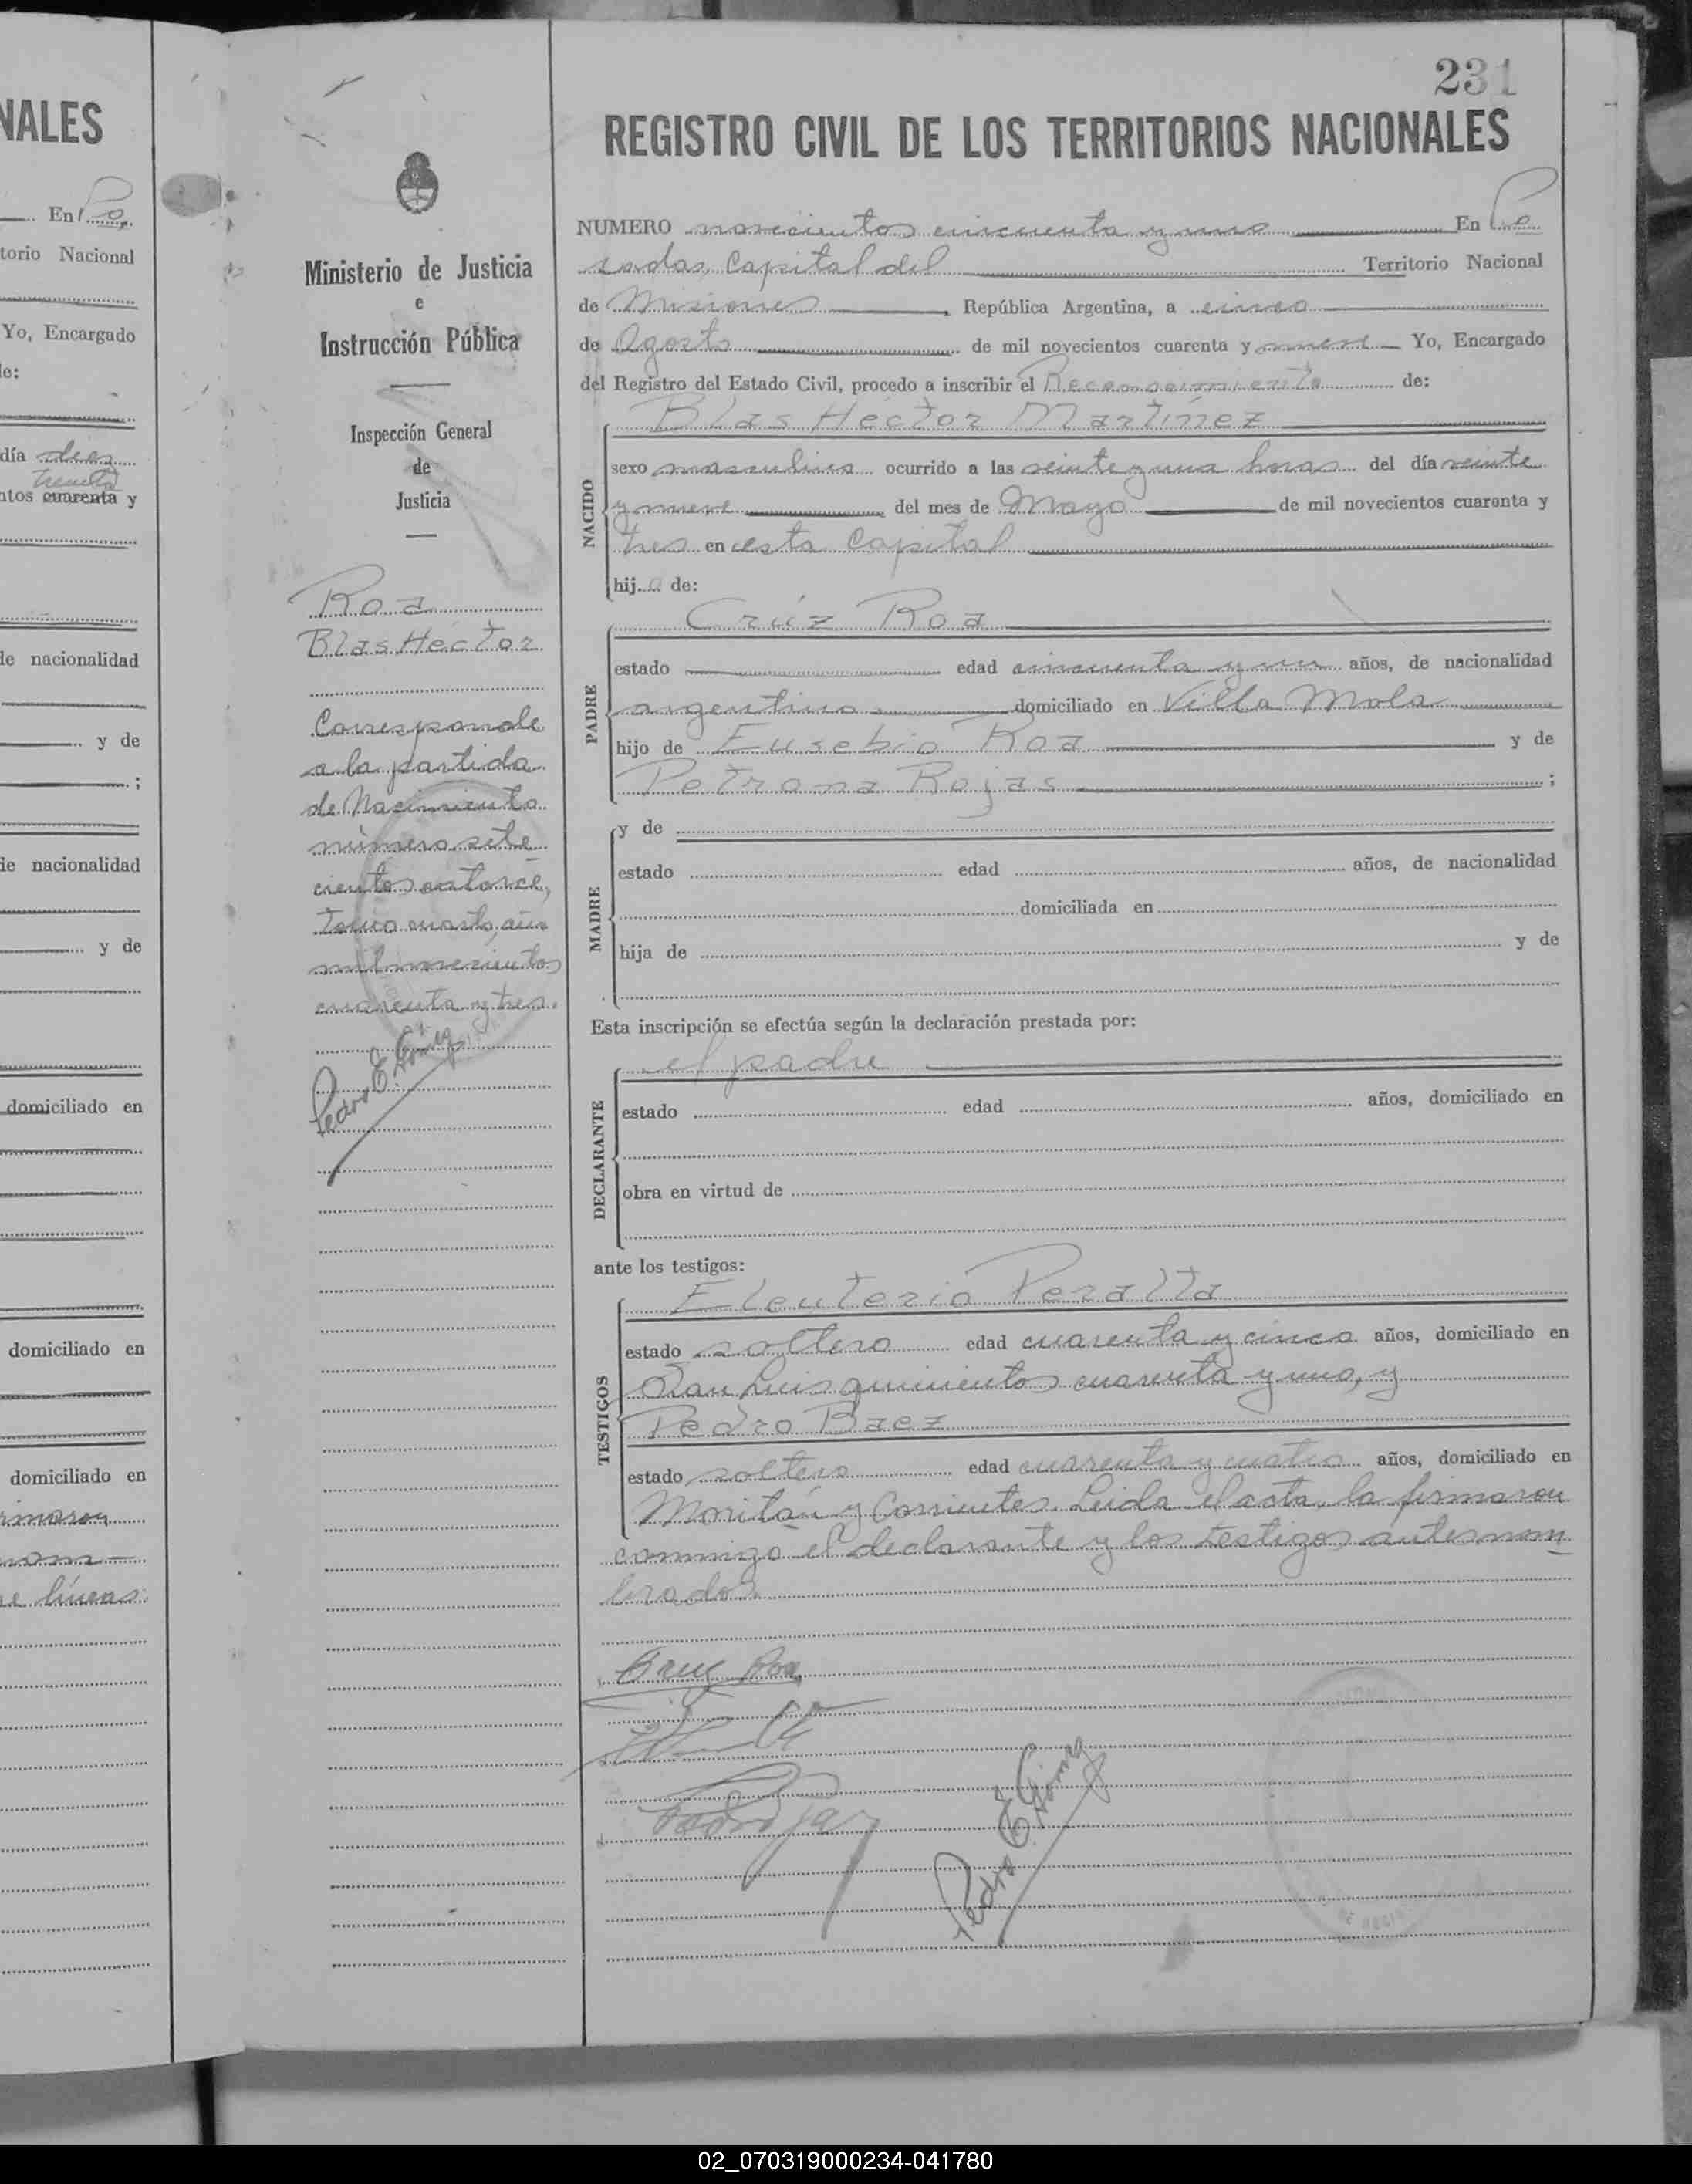 NALES
En Po
torio Nacional
Yo, Encargado
día diez
treinta
ntos cuarenta y
de nacionalidad
y de
;
de nacionalidad
y de
domiciliado en
domiciliado en
domiciliado en
rmaron
nom-
líneas
Ministerio de Justicia
e
Instrucción Pública
Inspección General
de
Justicia
Roa
Blas Héctor
Corresponde
a la partida
de Nacimiento
número sete
cientos catorce,
tomo cuarto, año
mil novecientos
cuarenta y tres.
Pedro E. Gómez
231
REGISTRO CIVIL DE LOS TERRITORIOS NACIONALES
NUMERO novecientos cincuenta y uno En Po
sadas, Capital del Territorio Nacional
de Misiones, República Argentina, a cinco
de Agosto de mil novecientos cuarenta y nueve Yo, Encargado
del Registro del Estado Civil, procedo a inscribir el Reconocimiento de:
NACIDO
Blas Héctor Martínez
sexo masculino ocurrido a las veinte y una horas del día veinte
y nueve del mes de Mayo de mil novecientos cuarenta y
tres en esta Capital
hijo de:
PADRE
Crúz Roa
estado edad cincuenta y un años, de nacionalidad
argentino domiciliado en Villa Mola
hijo de Eusebio Roa y de
Petrona Rojas ;
MADRE
y de
estado edad años, de nacionalidad
domiciliada en
hija de y de
Esta inscripción se efectúa según la declaración prestada por:
DECLARANTE
el padre
estado edad años, domiciliado en
obra en virtud de
ante los testigos:
TESTIGOS
Eleuterio Peralta
estado soltero edad cuarenta y cinco años, domiciliado en
San Luis quinientos cuarenta y uno, y
Pedro Baez
estado soltero edad cuarenta y cuatro años, domiciliado en
Moritán y Corrientes. Leida el acta, la firmaron
conmigo el declarante y los testigos antenom
brados.
Cruz Roa
Pedro E. Gómez
02_070319000234-041780